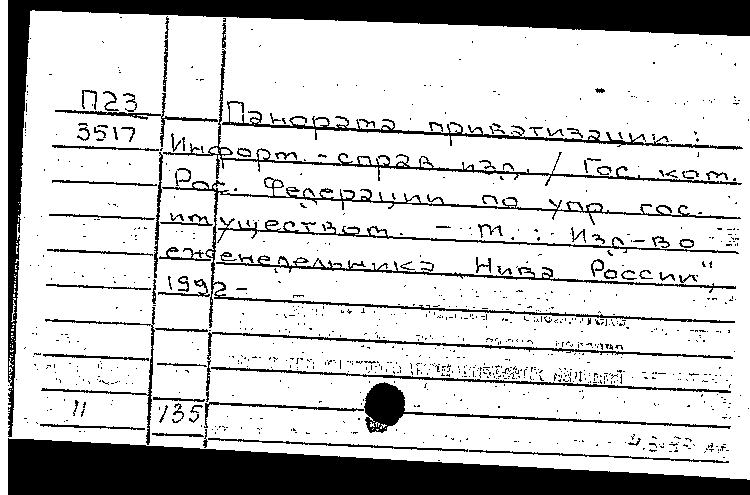 П23
3517
Панорама приватизации :
Информ.-справ. изд. / Гос. ком.
Рос. Федерации по упр. гос.
имуществом. - М. : Изд-во
еженедельника Нива России",
1992-
11 135